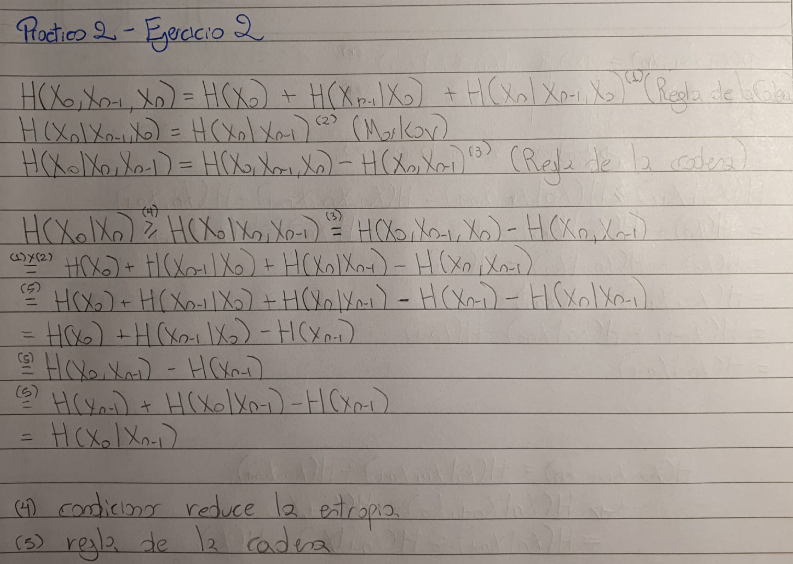 Práctico 2 - Ejercicio 2
H(X0,Xn-1,Xn) = H(X0) + H(Xn-1|X0) + H(Xn|Xn-1,X0) (1) (Regla de la
H(Xn|Xn-1,X0) = H(Xn|Xn-1) (2) (Markov)
H(X0|Xn,Xn-1) = H(X0,Xn-1,Xn) - H(Xn,Xn-1) (3) (Regla de la cadena)
H(X0|Xn) (4) ≥ H(X0|Xn,Xn-1) (3) = H(X0,Xn-1,Xn) - H(Xn,Xn-1)
(1)y(2) = H(X0) + H(Xn-1|X0) + H(Xn|Xn-1) - H(Xn,Xn-1)
(5) = H(X0) + H(Xn-1|X0) + H(Xn|Xn-1) - H(Xn-1) - H(Xn|Xn-1)
= H(X0) + H(Xn-1|X0) - H(Xn-1)
(5) = H(X0,Xn-1) - H(Xn-1)
(5) = H(Xn-1) + H(X0|Xn-1) - H(Xn-1)
= H(X0|Xn-1)
(4) condicionar reduce la entropia
(5) regla de la cadena